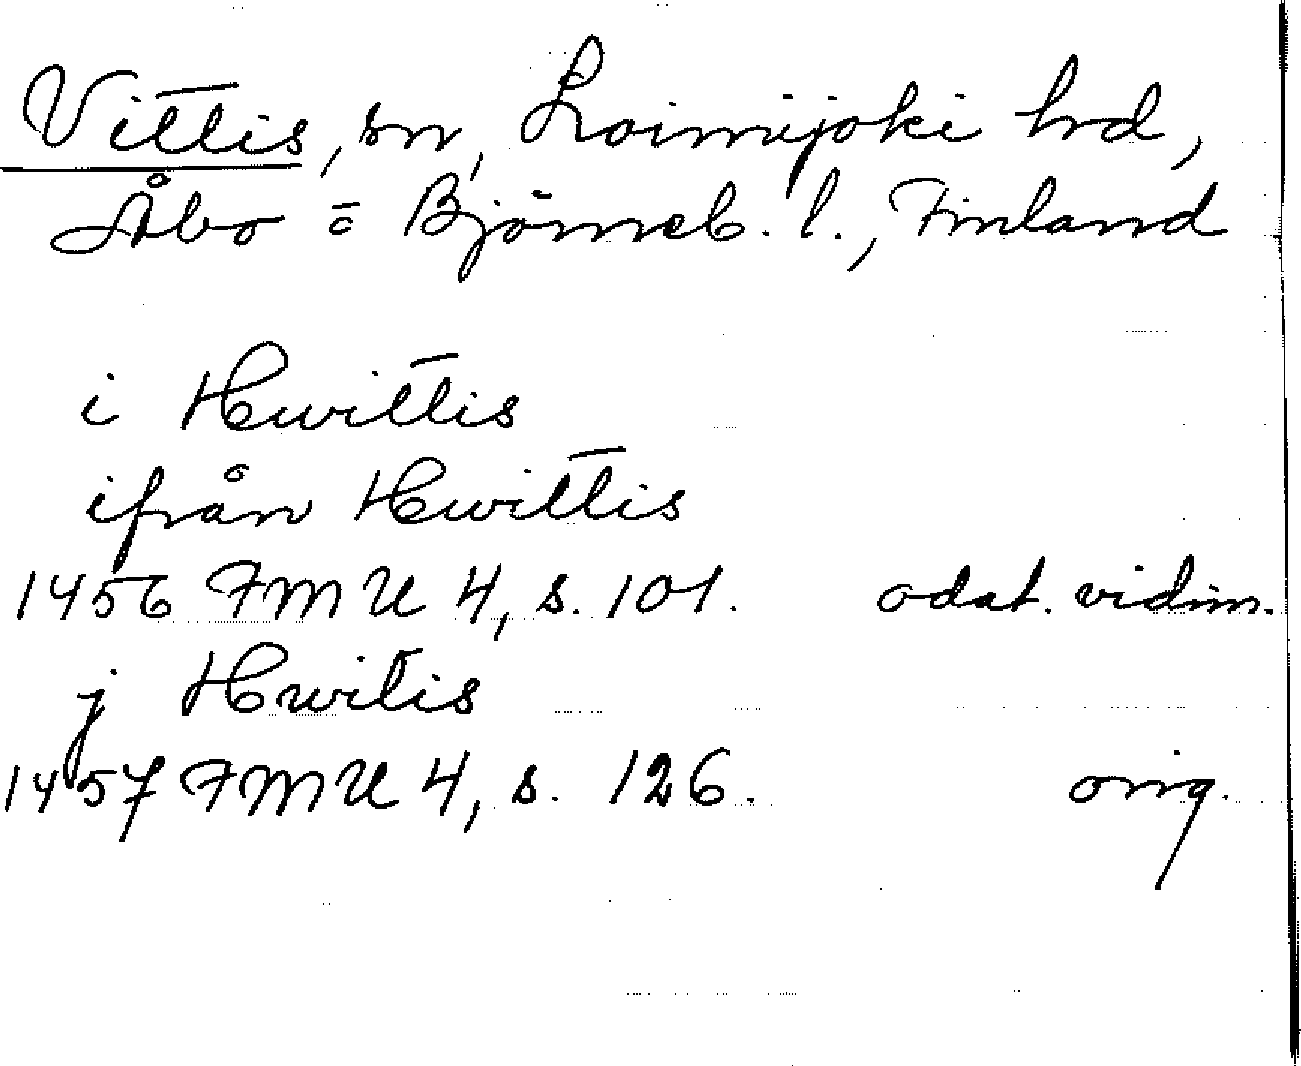 Vittis, sn, Loimijoki hrd,
Åbo = Björneb. l., Finland
i Hwittis
ifrån Hwittis
1456 FMU 4, s. 101. odat. vidim.
j Hwitis
1457 FMU 4, s. 126. orig.